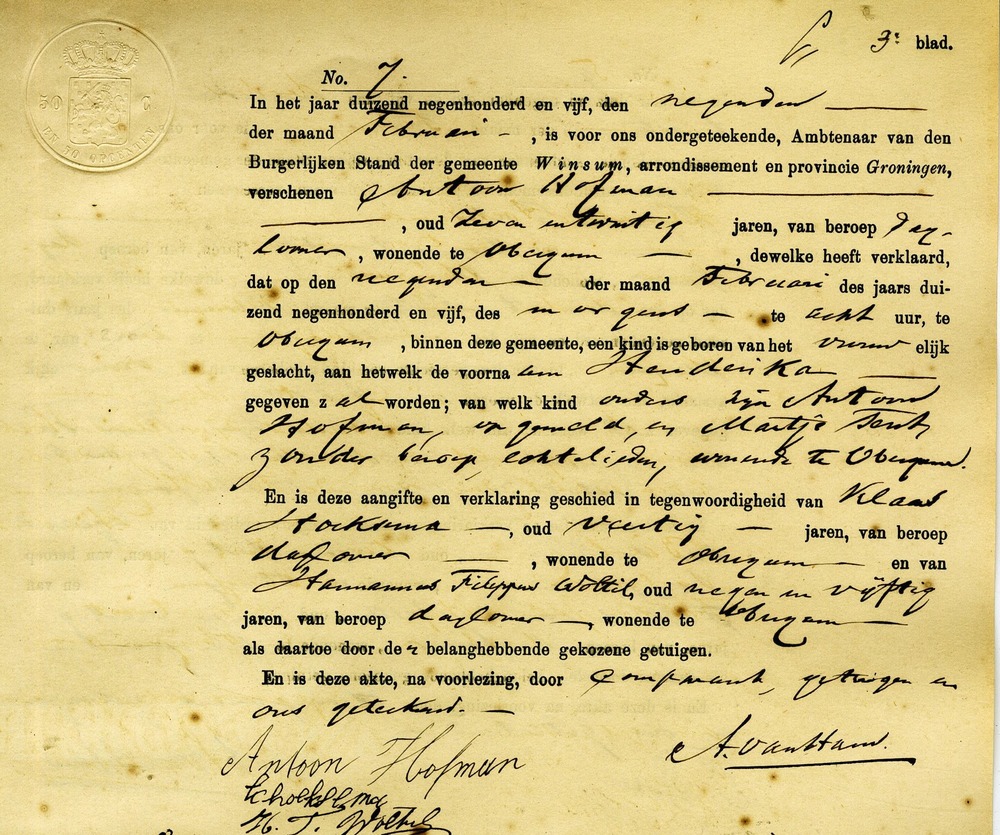 3e blad.
50 C
No. 7.
In het jaar duizend negenhonderd en vijf, den negenden
der maand Februari, is voor ons ondergeteekende, Ambtenaar van den
Burgerlijken Stand der gemeente Winsum, arrondissement en provincie Groningen,
verschenen Antoon Hofman
, oud Zeven entwintig jaren, van beroep dag-
loner, wonende te Obergum, dewelke heeft verklaard,
dat op den negenden der maand Februari des jaars dui-
zend negenhonderd en vijf, des morgens te acht uur, te
Obergum, binnen deze gemeente, een kind is geboren van het vrouwelijk
geslacht, aan hetwelk de voornaam Henderika
gegeven zal worden; van welk kind ouders zijn Antoon
Hofman, voormeld, en Martje
zonder beroep, echtelieden, wonende te Obergum.
En is deze aangifte en verklaring geschied in tegenwoordigheid van Klaas
Hoeksema, oud veertig jaren, van beroep
dagloner, wonende te Obergum en van
Harmannus Filippus Woltil, oud negen en vijftig
jaren, van beroep dagloner, wonende te Obergum
als daartoe door den belanghebbende gekozene getuigen.
En is deze akte, na voorlezing, door Comparant, getuigen en
ons geteekend.
Antoon Hofman
A. van Ham.
K Hoeksema
H. F. Woltil